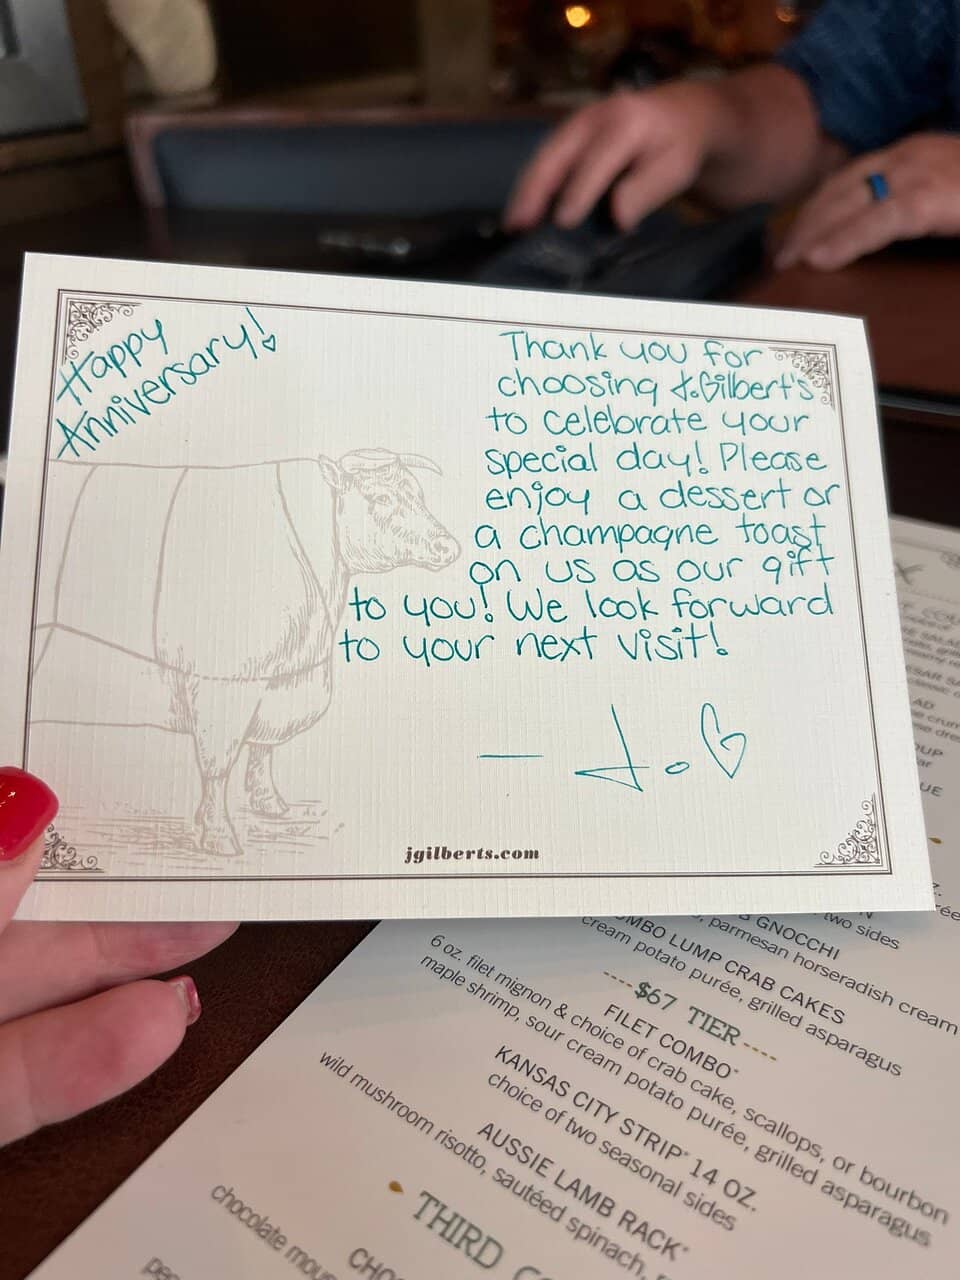 Happy
Anniversary!
Thank you for
choosing J.Gilbert's
to celebrate your
special day! Please
enjoy a dessert or
a champagne toast
on us as our gift
to you! We look forward
to your next visit!
— J.G
jgilberts.com
GNOCCHI
two sides
parmesan horseradish cream
LUMP CRAB CAKES
cream potato purée, grilled asparagus
$67 TIER
FILET COMBO*
6 oz. filet mignon & choice of crab cake, scallops, or bourbon
maple shrimp, sour cream potato purée, grilled asparagus
KANSAS CITY STRIP* 14 OZ.
choice of two seasonal sides
AUSSIE LAMB RACK*
wild mushroom risotto, sautéed spinach,
THIRD
chocolate